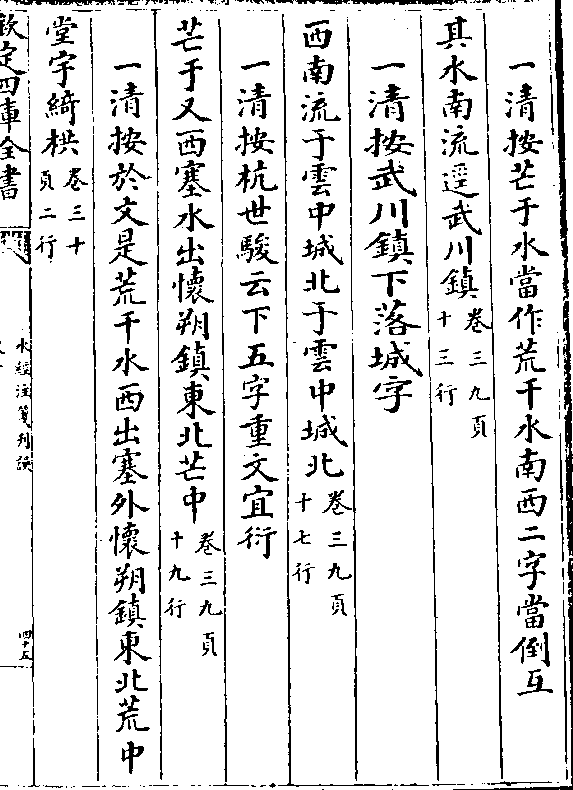 一清按芒于水當作荒干水南西二字當倒互
其水南流逕武川鎮卷三九頁十三行
一清按武川鎮下落城字
西南流于雲中城北于雲中城北卷三九頁十七行
一清按杭世駿云下五字重文宜衍
芒于又西塞水出懷朔鎮東北芒中卷三九頁十九行
一清按於文是荒干水西出塞外懷朔鎮東北荒中
堂宇綺栱卷三十頁二行
欽定四庫全書
水經注箋刋誤
四十五